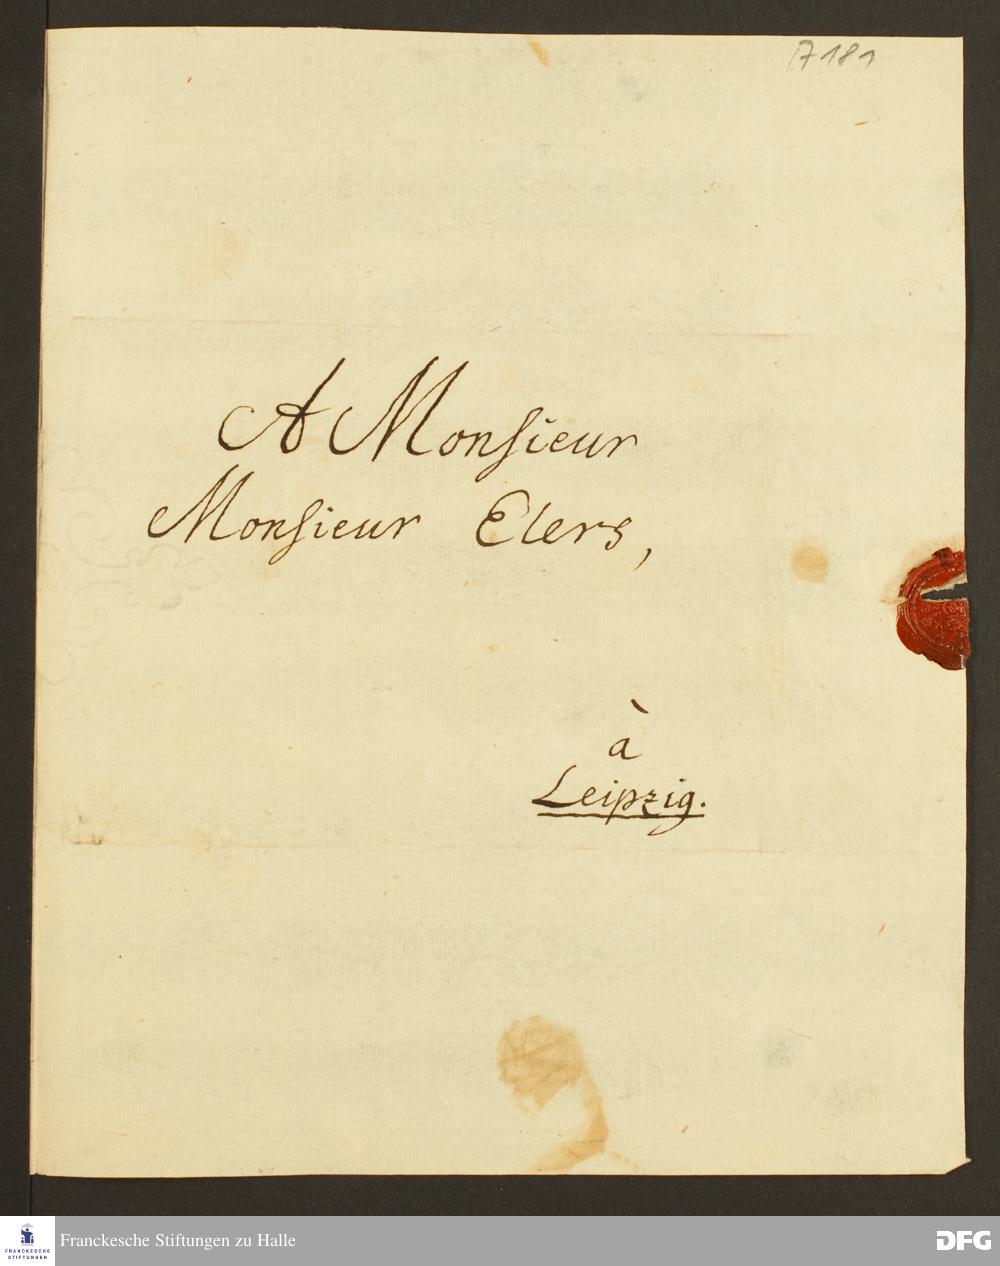 A 181
A Monsieur
Monsieur Elers,
à
Leipzig.
FRANCKESCHE
STIFTUNGEN
Franckesche Stiftungen zu Halle
DFG